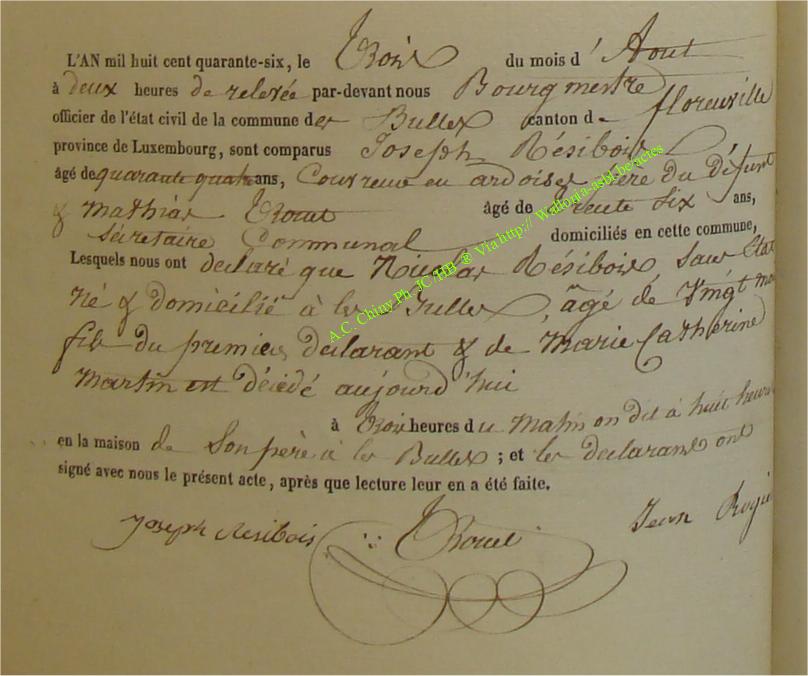 L'AN mil huit cent quarante-six, le Trois du mois d' Aout
à deux heures de relevée par-devant nous Bourgmestre
officier de l'état civil de la commune des Bulles canton de florenville
province de Luxembourg, sont comparus Joseph Résibois
âgé de quarante quatre ans, Couvreur en ardoises père du Défunt
& Mathias Trouet âgé de trente six ans,
Sécretaire Communal domiciliés en cette commune,
Lesquels nous ont declaré que Nicolas Résibois, sans état
né & domicilié à les Bulles, âgé de vingt mois
fils du premier declarant & de Marie Catherine
Martin est décédé aujourd'hui
à Trois heures du matin on dit à huit heures
en la maison de son père à les Bulles ; et les declarans ont
signé avec nous le présent acte, après que lecture leur en a été faite.
Joseph Resibois Trouet Jean
A.C. Chiny Ph. JC /HB ® Via http:// Wallonia-asbl.be/actes